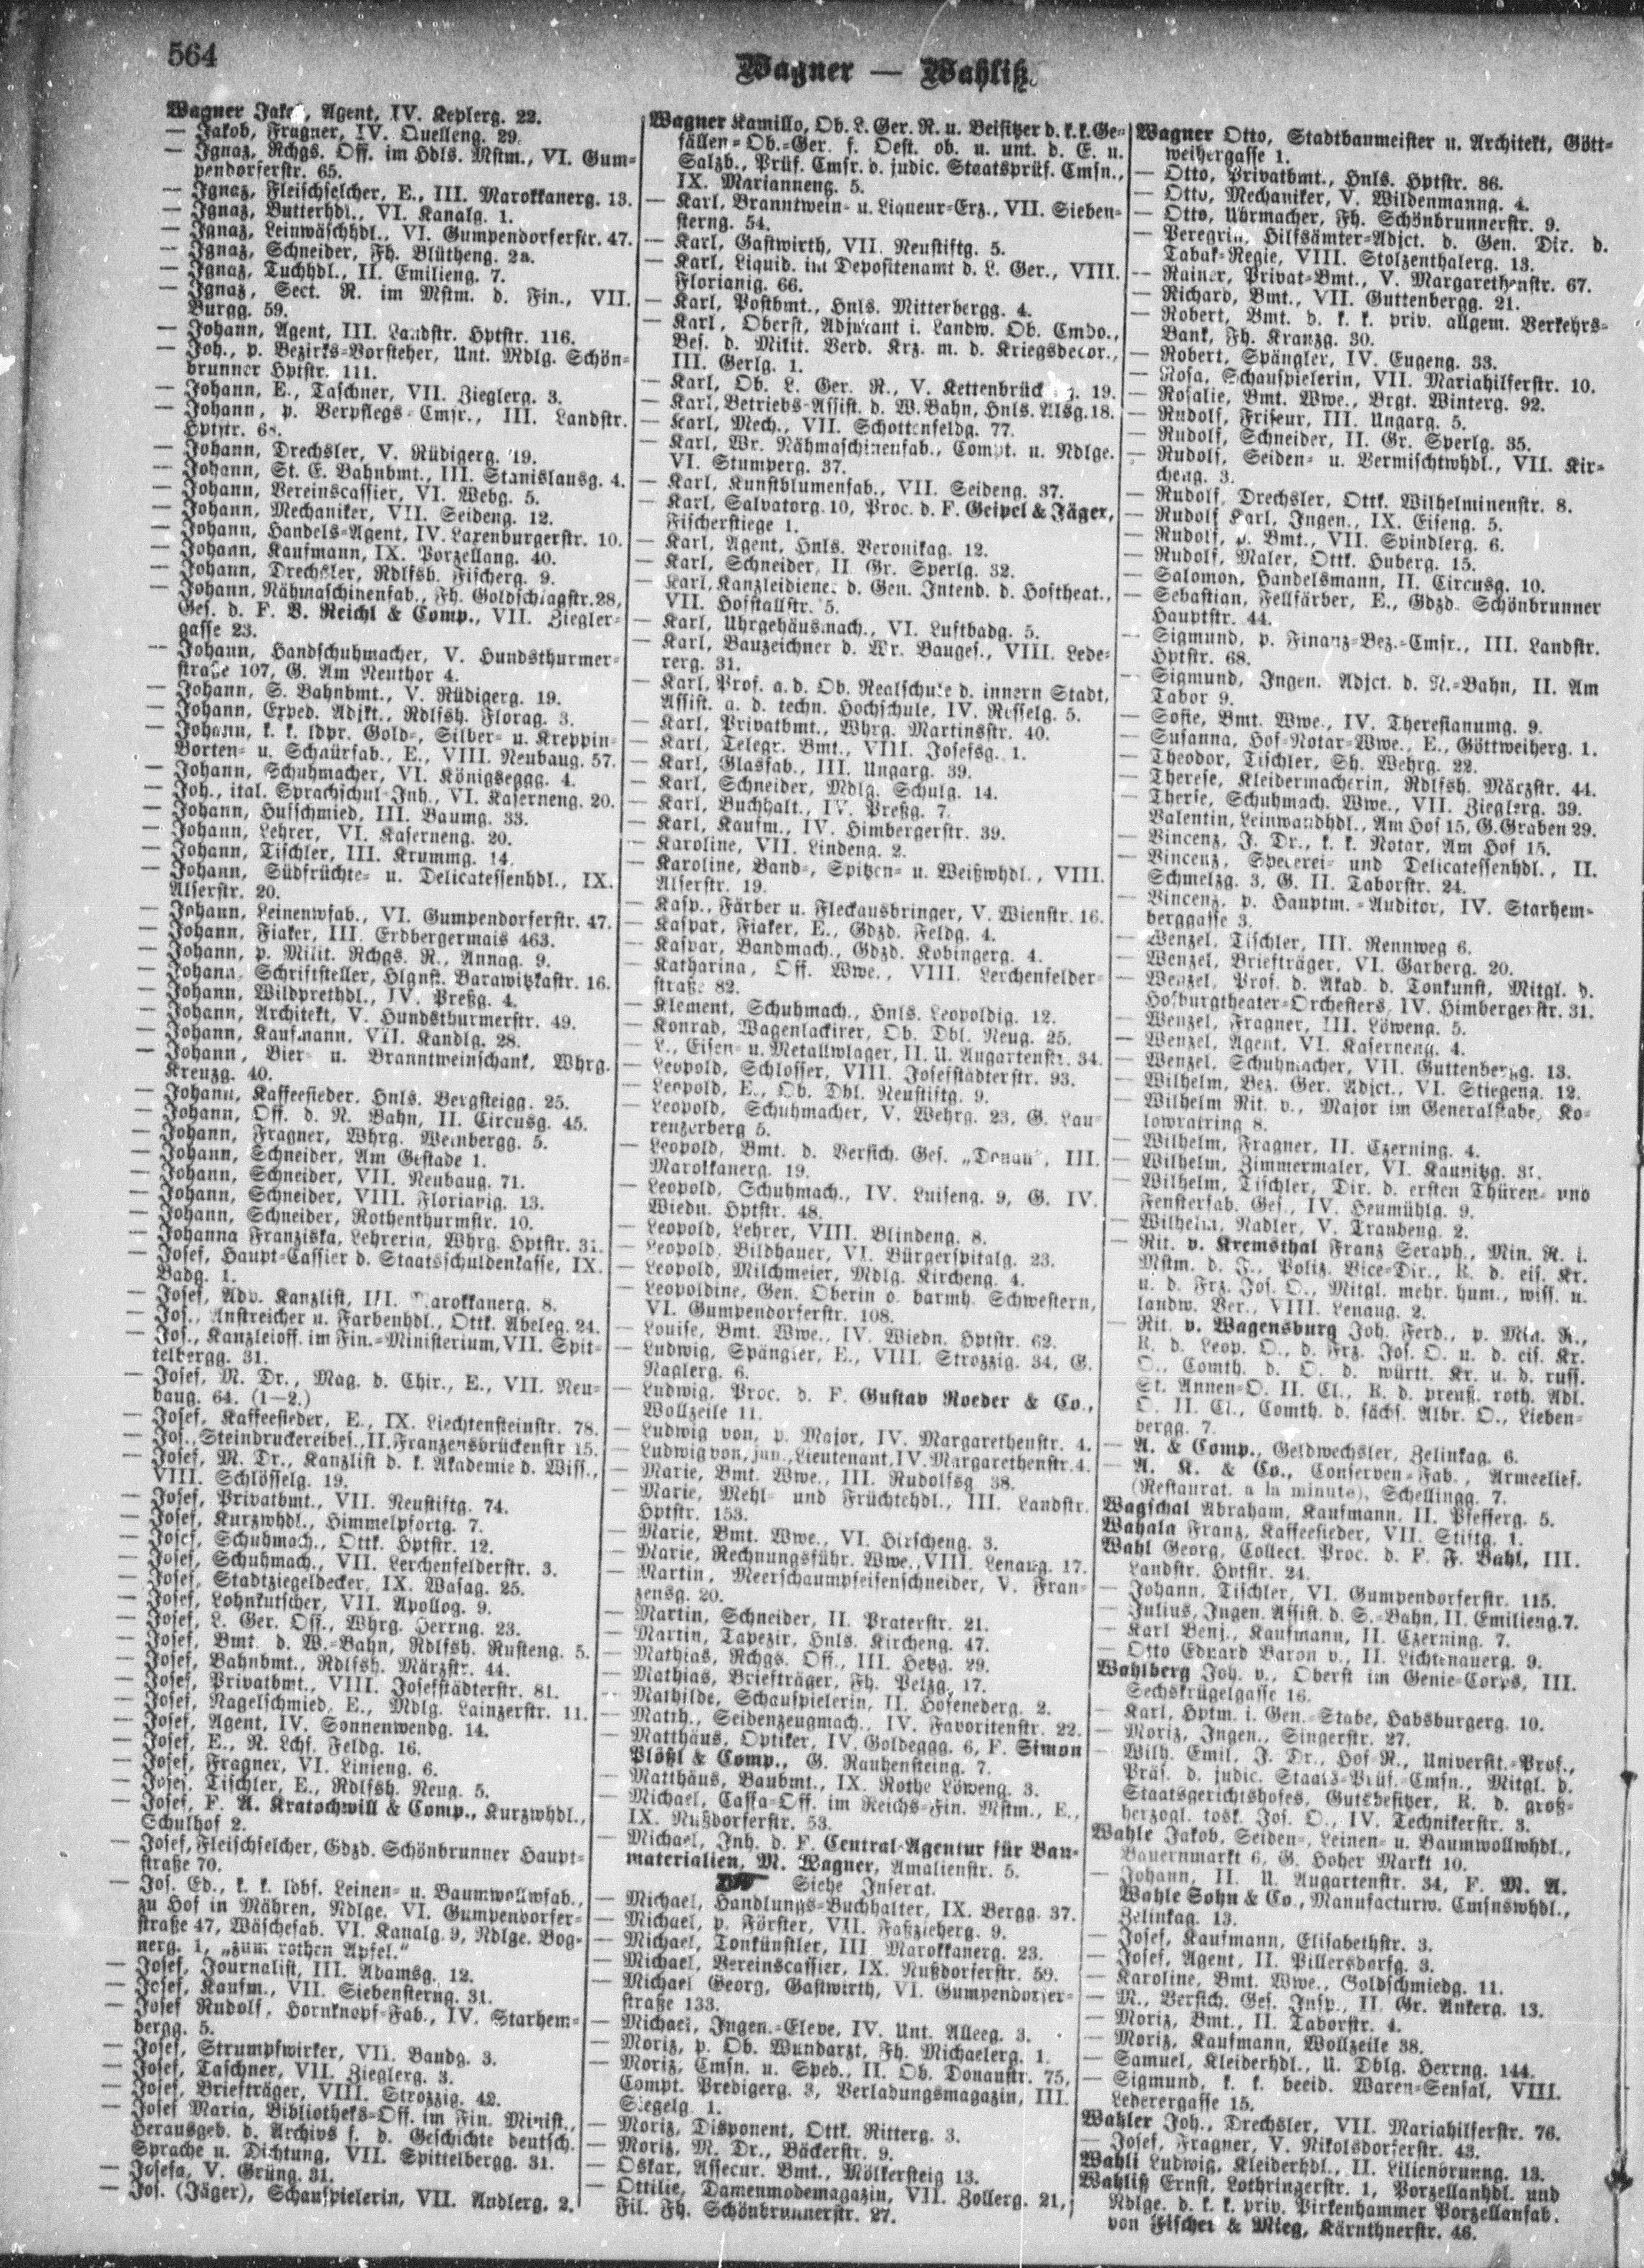 564
Wagner — Wahliß
Wagner Jakob, Agent, IV. Keplerg. 22.
— Jakob, Fragner, IV. Quelleng. 29.
— Ignaz, Rchgs. Off. im Hdls. Mstm., VI. Gum-
pendorferstr. 65.
— Ignaz, Fleischselcher, E., III. Marokkanerg. 13.
— Ignaz, Butterhdl., VI. Kanalg. 1.
— Ignaz, Leinwäschhdl., VI. Gumpendorferstr. 47.
— Ignaz, Schneider, Fh. Blütheng. 2a.
— Ignaz, Tuchhdl., II. Emilieng. 7.
— Ignaz, Sect. R. im Mstm. d. Fin., VII.
Burgg. 59.
— Johann, Agent, III. Landstr. Hptstr. 116.
— Joh., p. Bezirks-Vorsteher, Unt. Mdlg. Schön-
brunner Hptstr. 111.
— Johann, E., Taschner, VII. Zieglerg. 3.
— Johann, p. Verpflegs-Cmsr., III. Landstr.
Hptstr. 68.
— Johann, Drechsler, V. Rüdigerg. 19.
— Johann, St. E. Bahnbmt., III. Stanislausg. 4.
— Johann, Vereinscassier, VI. Webg. 5.
— Johann, Mechaniker, VII. Seideng. 12.
— Johann, Handels-Agent, IV. Laxenburgerstr. 10.
— Johann, Kaufmann, IX. Porzellang. 40.
— Johann, Drechsler, Rdlfsh. Fischerg. 9.
— Johann, Nähmaschinenfab., Fh. Goldschlagstr. 28,
Ges. d. F. B. Reichl & Comp., VII. Ziegler-
gasse 23.
— Johann, Handschuhmacher, V. Hundsthurmer-
straße 107, G. Am Neuthor 4.
— Johann, S. Bahnbmt., V. Rüdigerg. 19.
— Johann, Exped. Adjkt., Rdlfsh. Florag. 3.
— Johann, k. k. ldpr. Gold-, Silber- u. Kreppin-
Borten- u. Schnürfab., E., VIII. Neubaug. 57.
— Johann, Schuhmacher, VI. Königseggg. 4.
— Joh., ital. Sprachschul-Inh., VI. Kaserneng. 20.
— Johann, Hufschmied, III. Baumg. 33.
— Johann, Lehrer, VI. Kaserneng. 20.
— Johann, Tischler, III. Krummg. 14.
— Johann, Südfrüchte- u. Delicatessenhdl., IX.
Alserstr. 20.
— Johann, Leinenwfab., VI. Gumpendorferstr. 47.
— Johann, Fiaker, III. Erdbergermais 463.
— Johann, p. Milit. Rchgs. R., Annag. 9.
— Johann, Schriftsteller, Hlgnst. Barawitzkastr. 16.
— Johann, Wildprethdl., IV. Preßg. 4.
— Johann, Architekt, V. Hundsthurmerstr. 49.
— Johann, Kaufmann, VII. Kandlg. 28.
— Johann, Bier- u. Branntweinschank, Whrg.
Kreuzg. 40.
— Johann, Kaffeesieder, Hnls. Bergsteigg. 25.
— Johann, Off. d. N. Bahn, II. Circusg. 45.
— Johann, Fragner, Whrg. Weinbergg. 5.
— Johann, Schneider, Am Gestade 1.
— Johann, Schneider, VII. Neubaug. 71.
— Johann, Schneider, VIII. Florianig. 13.
— Johann, Schneider, Rothenthurmstr. 10.
— Johanna Franziska, Lehrerin, Whrg. Hptstr. 31.
— Josef, Haupt-Cassier d. Staatsschuldenkasse, IX.
Badg. 1.
— Josef, Adv. Kanzlist, III. Marokkanerg. 8.
— Jos., Anstreicher u. Farbenhdl., Ottk. Abeleg. 24.
— Jos., Kanzleioff. im Fin.-Ministerium, VII. Spit-
telbergg. 31.
— Josef, M. Dr., Mag. d. Chir., E., VII. Neu-
baug. 64. (1—2.)
— Josef, Kaffeesieder, E., IX. Liechtensteinstr. 78.
— Jos., Steindruckereibes., II. Franzensbrückenstr 15.
— Josef, M. Dr., Kanzlist d. k. Akademie d. Wiss.,
VIII. Schlösselg. 19.
— Josef, Privatbmt., VII. Neustiftg. 74.
— Josef, Kurzwhdl., Himmelpfortg. 7.
— Josef, Schuhmach., Ottk. Hptstr. 12.
— Josef, Schuhmach., VII. Lerchenfelderstr. 3.
— Josef, Stadtziegeldecker, IX. Wasag. 25.
— Josef, Lohnkutscher, VII. Apollog. 9.
— Josef, L. Ger. Off., Whrg. Herrng. 23.
— Josef, Bmt. d. W.-Bahn, Rdlfsh. Rusteng. 5.
— Josef, Bahnbmt., Rdlfsh. Märzstr. 44.
— Josef, Privatbmt., VIII. Josefstädterstr. 81.
— Josef, Nagelschmied, E., Mdlg. Lainzerstr. 11.
— Josef, Agent, IV. Sonnenwendg. 14.
— Josef, E., N. Lchf. Feldg. 16.
— Josef, Fragner, VI. Linieng. 6.
— Josef, Tischler, E., Rdlfsh. Neug. 5.
— Josef, F. A. Kratochwill & Comp., Kurzwhdl.,
Schulhof 2.
— Josef, Fleischselcher, Gdzd. Schönbrunner Haupt-
straße 70.
— Jos. Ed., k. k. ldbf. Leinen- u. Baumwollwfab.,
zu Hof in Mähren, Ndlge. VI. Gumpendorfer-
straße 47, Wäschefab. VI. Kanalg. 9, Ndlge. Bog-
nerg. 1, „zum rothen Apfel."
— Josef, Journalist, III. Adamsg. 12.
— Josef, Kaufm., VII. Siebensterng. 31.
— Josef Rudolf, Hornknopf-Fab., IV. Starhem-
bergg. 5.
— Josef, Strumpfwirker, VII. Bandg. 3.
— Josef, Taschner, VII. Zieglerg. 3.
— Josef, Briefträger, VIII. Strozzig. 42.
— Josef Maria, Bibliotheks-Off. im Fin. Minist.,
Herausgeb. d. Archivs f. d. Geschichte deutsch.
Sprache u. Dichtung, VII. Spittelbergg. 31.
— Josefa, V. Grüng. 31.
— Jos. (Jäger), Schauspielerin, VII. Andlerg. 2.
Wagner Kamillo, Ob. L. Ger. R. u. Beisitzer d. k. k. Ge-
fällen-Ob.-Ger. f. Oest. ob. u. unt. d. E. u.
Salzb., Prüf. Cmsr. d. judic. Staatsprüf. Cmsn.,
IX. Marianneng. 5.
— Karl, Branntwein- u. Liqueur-Erz., VII. Sieben-
sterng. 54.
— Karl, Gastwirth, VII. Neustiftg. 5.
— Karl, Liquid. im Depositenamt d. L. Ger., VIII.
Florianig. 66.
— Karl, Postbmt., Hnls. Mitterbergg. 4.
— Karl, Oberst, Adjutant i. Landw. Ob. Cmdo.,
Bes. d. Milit. Verd. Krz. m. d. Kriegsdecor.,
III. Gerlg. 1.
— Karl, Ob. L. Ger. R., V. Kettenbrückg. 19.
— Karl, Betriebs-Assist. d. W. Bahn, Hnls. Alsg. 18.
— Karl, Mech., VII. Schottenfeldg. 77.
— Karl, Wr. Nähmaschinenfab., Compt. u. Ndlge.
VI. Stumperg. 37.
— Karl, Kunstblumenfab., VII. Seideng. 37.
— Karl, Salvatorg. 10, Proc. d. F. Geipel & Jäger,
Fischerstiege 1.
— Karl, Agent, Hnls. Veronikag. 12.
— Karl, Schneider, II Gr. Sperlg. 32.
— Karl, Kanzleidiener d. Gen. Intend. d. Hoftheat.,
VII. Hofstallstr. 5.
— Karl, Uhrgehäusmach., VI. Luftbadg. 5.
— Karl, Bauzeichner d. Wr. Bauges., VIII. Lede-
rerg. 31.
— Karl, Prof. a. d. Ob. Realschule d. innern Stadt,
Assist. a. d. techn. Hochschule, IV. Resselg. 5.
— Karl, Privatbmt., Whrg. Martinsstr. 40.
— Karl, Telegr. Bmt., VIII. Josefsg. 1.
— Karl, Glasfab., III. Ungarg. 39.
— Karl, Schneider, Mdlg. Schulg. 14.
— Karl, Buchhalt., IV. Preßg. 7.
— Karl, Kaufm., IV. Himbergerstr. 39.
— Karoline, VII. Lindeng. 2.
— Karoline, Band-, Spitzen- u. Weißwhdl., VIII.
Alserstr. 19.
— Kasp., Färber u. Fleckausbringer, V. Wienstr. 16.
— Kaspar, Fiaker, E., Gdzd. Feldg. 4.
— Kaspar, Bandmach., Gdzd. Kobingerg. 4.
— Katharina, Off. Wwe., VIII. Lerchenfelder-
straße 82.
— Klement, Schuhmach., Hnls. Leopoldig. 12.
— Konrad, Wagenlackirer, Ob. Dbl. Neug. 25.
— L., Eisen- u. Metallwlager, II. U. Augartenstr. 34.
— Leopold, Schlosser, VIII. Josefstädterstr. 93.
— Leopold, E., Ob. Dbl. Neustiftg. 9.
— Leopold, Schuhmacher, V. Wehrg. 23, G. Lau-
renzerberg 5.
— Leopold, Bmt. d. Versich. Ges. „Donau", III.
Marokkanerg. 19.
— Leopold, Schuhmach., IV. Luiseng. 9, G. IV.
Wiedn. Hptstr. 48.
— Leopold, Lehrer, VIII. Blindeng. 8.
— Leopold, Bildhauer, VI. Bürgerspitalg. 23.
— Leopold, Milchmeier, Mdlg. Kircheng. 4.
— Leopoldine, Gen. Oberin o. barmh. Schwestern,
VI. Gumpendorferstr. 108.
— Louise, Bmt. Wwe., IV. Wiedn. Hptstr. 62.
— Ludwig, Spängler, E., VIII. Strozzig. 34, G.
Naglerg. 6.
— Ludwig, Proc. d. F. Gustav Roeder & Co.,
Wollzeile 11.
— Ludwig von, p. Major, IV. Margarethenstr. 4.
— Ludwig von, jun., Lieutenant, IV. Margarethenstr. 4.
— Marie, Bmt. Wwe., III. Rudolfsg 38.
— Marie, Mehl- und Früchtehdl., III. Landstr.
Hptstr. 153.
— Marie, Bmt. Wwe., VI. Hirscheng. 3.
— Marie, Rechnungsführ. Wwe., VIII. Lenaug. 17.
— Martin, Meerschaumpfeifenschneider, V. Fran-
zensg. 20.
— Martin, Schneider, II. Praterstr. 21.
— Martin, Tapezir, Hnls. Kircheng. 47.
— Mathias, Rchgs. Off., III. Hetzg. 29.
— Mathias, Briefträger, Fh. Pelzg. 17.
— Mathilde, Schauspielerin, II. Hofenederg. 2.
— Matth., Seidenzeugmach., IV. Favoritenstr. 22.
— Matthäus, Optiker, IV. Goldeggg. 6, F. Simon
Plößl & Comp., G. Rauhensteing. 7.
— Matthäus, Baubmt., IX. Rothe Löweng. 3.
— Michael, Cassa-Off. im Reichs-Fin. Mstm., E.,
IX. Nußdorferstr. 53.
— Michael, Inh. d. F. Central-Agentur für Bau-
materialien, M. Wagner, Amalienstr. 5.
Siehe Inserat.
— Michael, Handlungs-Buchhalter, IX. Bergg. 37.
— Michael, p. Förster, VII. Faßzieherg. 9.
— Michael, Tonkünstler, III. Marokkanerg. 23.
— Michael, Vereinscassier, IX. Nußdorferstr. 59.
— Michael Georg, Gastwirth, VI. Gumpendorfer-
straße 133.
— Michael, Ingen.-Eleve, IV. Unt. Alleeg. 3.
— Moriz, p. Ob. Wundarzt, Fh. Michaelerg. 1.
— Moriz, Cmsn. u. Sped., II. Ob. Donaustr. 75,
Compt. Predigerg. 3, Verladungsmagazin, III.
Siegelg. 1.
— Moriz, Disponent, Ottk. Ritterg. 3.
— Moriz, M. Dr., Bäckerstr. 9.
— Oskar, Assecur. Bmt., Mölkersteig 13.
— Ottilie, Damenmodemagazin, VII. Zollerg. 21,
Fil. Fh. Schönbrunnerstr. 27.
Wagner Otto, Stadtbaumeister u. Architekt, Gött-
weihergasse 1.
— Otto, Privatbmt., Hnls. Hptstr. 86.
— Otto, Mechaniker, V. Wildenmanng. 4.
— Otto, Uhrmacher, Fh. Schönbrunnerstr. 9.
— Peregrin, Hilfsämter-Adjct. d. Gen. Dir. d.
Tabak-Regie, VIII. Stolzenthalerg. 13.
— Rainer, Privat-Bmt., V. Margarethenstr. 67.
— Richard, Bmt., VII. Guttenbergg. 21.
— Robert, Bmt. d. k. k. priv. allgem. Verkehrs-
Bank, Fh. Kranzg. 30.
— Robert, Spängler, IV. Eugeng. 33.
— Rosa, Schauspielerin, VII. Mariahilferstr. 10.
— Rosalie, Bmt. Wwe., Brgt. Winterg. 92.
— Rudolf, Friseur, III. Ungarg. 5.
— Rudolf, Schneider, II. Gr. Sperlg. 35.
— Rudolf, Seiden- u. Vermischtwhdl., VII. Kir-
cheng. 3.
— Rudolf, Drechsler, Ottk. Wilhelminenstr. 8.
— Rudolf Karl, Ingen., IX. Eiseng. 5.
— Rudolf, p. Bmt., VII. Spindlerg. 6.
— Rudolf, Maler, Ottk. Huberg. 15.
— Salomon, Handelsmann, II. Circusg. 10.
— Sebastian, Fellfärber, E., Gdzd. Schönbrunner
Hauptstr. 44.
— Sigmund, p. Finanz-Bez.-Cmsr., III. Landstr.
Hptstr. 68.
— Sigmund, Ingen. Adjct. d. N.-Bahn, II. Am
Tabor 9.
— Sofie, Bmt. Wwe., IV. Theresianumg. 9.
— Susanna, Hof-Notar-Wwe., E., Göttweiherg. 1.
— Theodor, Tischler, Sh. Wehrg. 22.
— Therese, Kleidermacherin, Rdlfsh. Märzstr. 44.
— Therse, Schuhmach. Wwe., VII. Zieglerg. 39.
— Valentin, Leinwandhdl., Am Hof 15, G. Graben 29.
— Vincenz, J. Dr., k. k. Notar, Am Hof 15.
— Vincenz, Specerei- und Delicatessenhdl., II.
Schmelzg. 3, G. II. Taborstr. 24.
— Vincenz, p. Hauptm.-Auditor, IV. Starhem-
berggasse 3.
— Wenzel, Tischler, III. Rennweg 6.
— Wenzel, Briefträger, VI. Garberg. 20.
— Wenzel, Prof. d. Akad. d. Tonkunst, Mitgl. d.
Hofburgtheater-Orchesters, IV. Himbergerstr. 31.
— Wenzel, Fragner, III. Löweng. 5.
— Wenzel, Agent, VI. Kaserneng. 4.
— Wenzel, Schuhmacher, VII. Guttenbergg. 13.
— Wilhelm, Bez. Ger. Adjct., VI. Stiegeng. 12.
— Wilhelm Rit. v., Major im Generalstabe, Ko-
lowratring 8.
— Wilhelm, Fragner, II. Czerning. 4.
— Wilhelm, Zimmermaler, VI. Kaunitzg. 31.
— Wilhelm, Tischler, Dir. d. ersten Thüren- und
Fensterfab. Ges., IV. Heumühlg. 9.
— Wilhelm, Nadler, V. Traubeng. 2.
— Rit. v. Kremsthal Franz Seraph., Min. R. i.
Mstm. d. J., Poliz. Vice-Dir., R. d. eis. Kr.
u. d. Frz. Jos. O., Mitgl. mehr. hum., wiss. u.
landw. Ver., VIII. Lenaug. 2.
— Rit. v. Wagensburg Joh. Ferd., p. Min. R.,
R. d. Leop. O., d. Frz. Jos. O. u. d. eis. Kr.
O., Comth. d. O. d. württ. Kr. u. d. russ.
St. Annen-O. II. Cl., R. d. preuß. roth. Adl.
O. II. Cl., Comth. d. sächs. Albr. O., Lieben-
bergg. 7.
— A. & Comp., Geldwechsler, Zelinkag. 6.
— A. K. & Co., Conserven-Fab., Armeelief.
(Restaurat. a la minute), Schellingg. 7.
Wagschal Abraham, Kaufmann, II. Pfefferg. 5.
Wahala Franz, Kaffeesieder, VII. Stiftg. 1.
Wahl Georg, Collect. Proc. d. F. F. Bahl, III.
Landstr. Hptstr. 24.
— Johann, Tischler, VI. Gumpendorferstr. 115.
— Julius, Ingen. Assist. d. S.-Bahn, II. Emilieng. 7.
— Karl Benj., Kaufmann, II. Czerning. 7.
— Otto Eduard Baron v., II. Lichtenauerg. 9.
Wahlberg Joh. v., Oberst im Genie-Corps, III.
Sechskrügelgasse 16.
— Karl, Hptm. i. Gen.-Stabe, Habsburgerg. 10.
— Moriz, Ingen., Singerstr. 27.
— Wilh. Emil, J. Dr., Hof-R., Universit.-Prof.,
Präs. d. judic. Staats-Prüf.-Cmsn., Mitgl. d.
Staatsgerichtshofes, Gutsbesitzer, R. d. groß-
herzogl. tosk. Jos. O., IV. Technikerstr. 3.
Wahle Jakob, Seiden-, Leinen- u. Baumwollwhdl.,
Bauernmarkt 6, G. Hoher Markt 10.
— Johann, II. U. Augartenstr. 34, F. M. A.
Wahle Sohn & Co., Manufacturw. Cmsnswhdl.,
Zelinkag. 13.
— Josef, Kaufmann, Elisabethstr. 3.
— Josef, Agent, II. Pillersdorfg. 3.
— Karoline, Bmt. Wwe., Goldschmiedg. 11.
— M., Versich. Ges. Insp., II. Gr. Ankerg. 13.
— Moriz, Bmt., II. Taborstr. 4.
— Moriz, Kaufmann, Wollzeile 38.
— Samuel, Kleiderhdl., U. Dblg. Herrng. 144.
— Sigmund, k. k. beeid. Waren-Sensal, VIII.
Lederergasse 15.
Wahler Joh., Drechsler, VII. Mariahilferstr. 76.
— Josef, Fragner, V. Nikolsdorferstr. 43.
Wahli Ludwig, Kleiderhdl., II. Lilienbrunng. 13.
Wahliß Ernst, Lothringerstr. 1, Porzellanhdl. und
Ndlge. d. k. k. priv. Pirkenhammer Porzellanfab.
von Fischer & Mieg, Kärnthnerstr. 46.